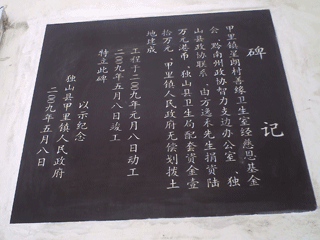 碑记
甲里镇呈朗村善缘卫生室经慈恩基金
会、黔南州政协智力支边办公室、独
山县政协联系，由方逸禾先生捐资陆
万元港币，独山县卫生局配套资金壹
拾万元、甲里镇人民政府无偿划拨土
地建成
工程于二〇〇九年元月八日动工
二〇〇九年五月八日竣工
特立此碑
以示纪念
独山县甲里镇人民政府
二〇〇九年五月八日